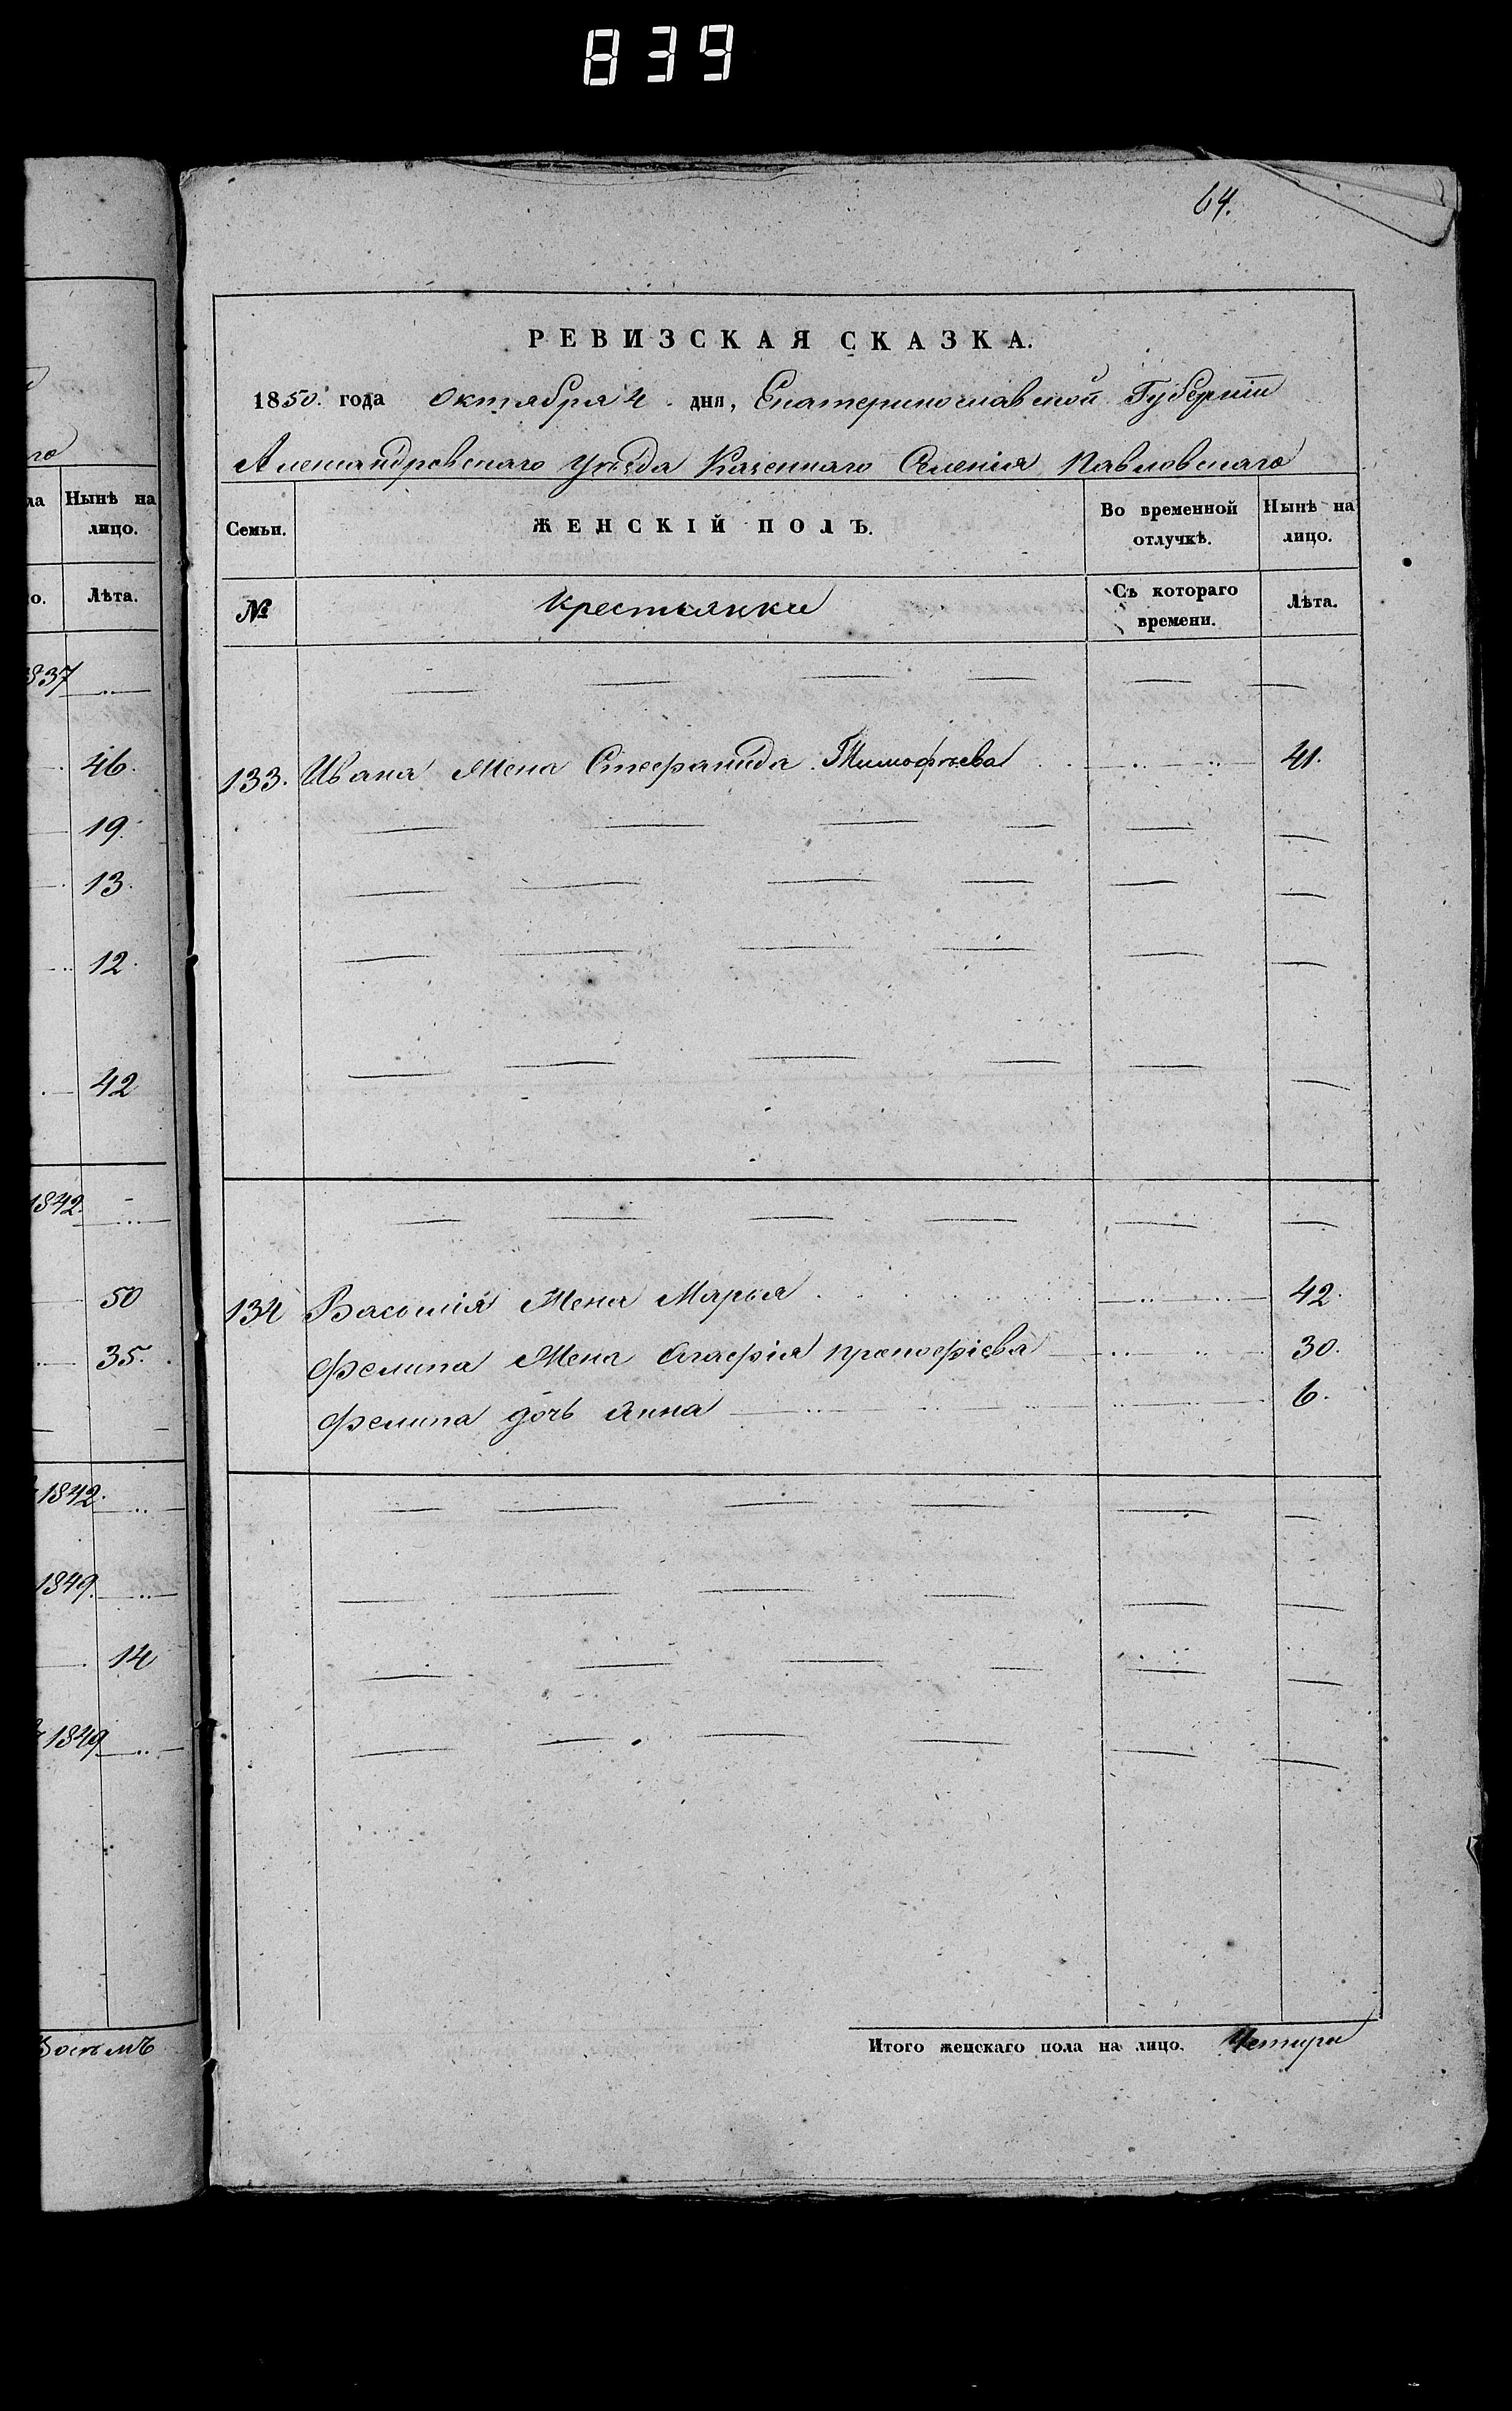 839
64.
РЕВИЗСКАЯ СКАЗКА.
1850. года Октября 4. дня, Екатеринославской Губерніи
Александровскаго Уѣзда Казеннаго Селенія Павловскаго
Семьи.
ЖЕНСКІЙ ПОЛЪ.
Во временной отлучкѣ.
Нынѣ на лицо.
№
Крестьянки
Съ котораго времени.
Лѣта.
133. Ивана Жена Стефанида Тимофѣева 41.
134 Василія Жена Марья 42.
Филипа Жена Агафія Прокофіева 30.
Филипа дочь Анна 6.
Итого женскаго пола на лицо. Четыри
Нынѣ на
лицо.
Лѣта.
837
46.
19.
13.
12.
42
1842.
50
35.
1842.
1849.
14
1849